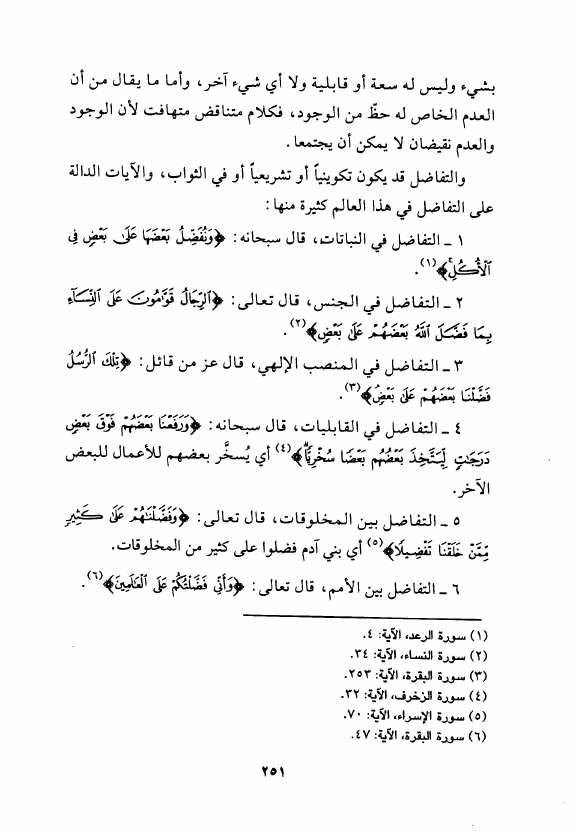 بشيء وليس له سعة أو قابلية ولا أي شيء آخر، وأما ما يقال من أن
العدم الخاص له حظّ من الوجود، فكلام متناقض متهافت لأن الوجود
والعدم نقيضان لا يمكن أن يجتمعا.
والتفاضل قد يكون تكوينياً أو تشريعياً أو في الثواب، والآيات الدالة
على التفاضل في هذا العالم كثيرة منها:
١ ـ التفاضل في النباتات، قال سبحانه: ﴿وَنُفَضِّلُ بَعْضَهَا عَلَىٰ بَعْضٍ فِي
ٱلْأُكُلِ﴾(١).
٢ ـ التفاضل في الجنس، قال تعالى: ﴿ٱلرِّجَالُ قَوَّامُونَ عَلَى ٱلنِّسَآءِ
بِمَا فَضَّلَ ٱللَّهُ بَعْضَهُمْ عَلَىٰ بَعْضٍ﴾(٢).
٣ ـ التفاضل في المنصب الإلهي، قال عز من قائل: ﴿تِلْكَ ٱلرُّسُلُ
فَضَّلْنَا بَعْضَهُمْ عَلَىٰ بَعْضٍ﴾(٣).
٤ ـ التفاضل في القابليات، قال سبحانه: ﴿وَرَفَعْنَا بَعْضَهُمْ فَوْقَ بَعْضٍ
دَرَجَٰتٍ لِّيَتَّخِذَ بَعْضُهُم بَعْضًا سُخْرِيًّا﴾(٤) أي يُسخَّر بعضهم للأعمال للبعض
الآخر.
٥ ـ التفاضل بين المخلوقات، قال تعالى: ﴿وَفَضَّلْنَٰهُمْ عَلَىٰ كَثِيرٍ
مِّمَّنْ خَلَقْنَا تَفْضِيلًا﴾(٥) أي بني آدم فضلوا على كثير من المخلوقات.
٦ ـ التفاضل بين الأمم، قال تعالى: ﴿وَأَنِّي فَضَّلْتُكُمْ عَلَى ٱلْعَالَمِينَ﴾(٦).
(١) سورة الرعد، الآية: ٤.
(٢) سورة النساء، الآية: ٣٤.
(٣) سورة البقرة، الآية: ٢٥٣.
(٤) سورة الزخرف، الآية: ٣٢.
(٥) سورة الإسراء، الآية: ٧٠.
(٦) سورة البقرة، الآية: ٤٧.
٢٥١